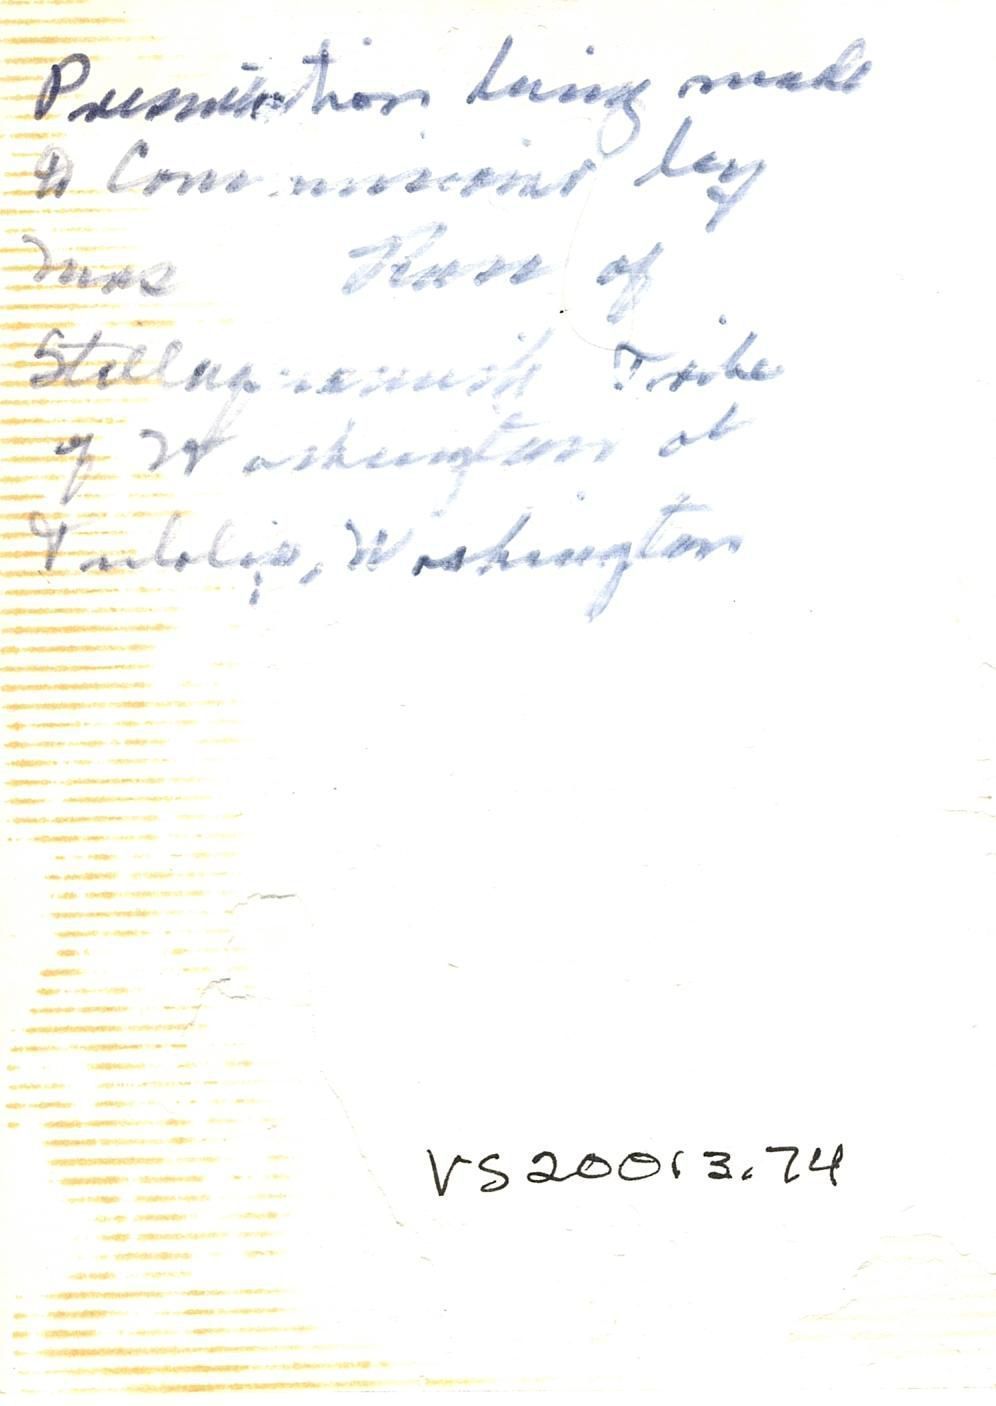 Presentation being made
to Commissioner by
Mrs Russ of
Stillaguamish Tribe
of Washington at
Tulalip, Washington
VS20013.74